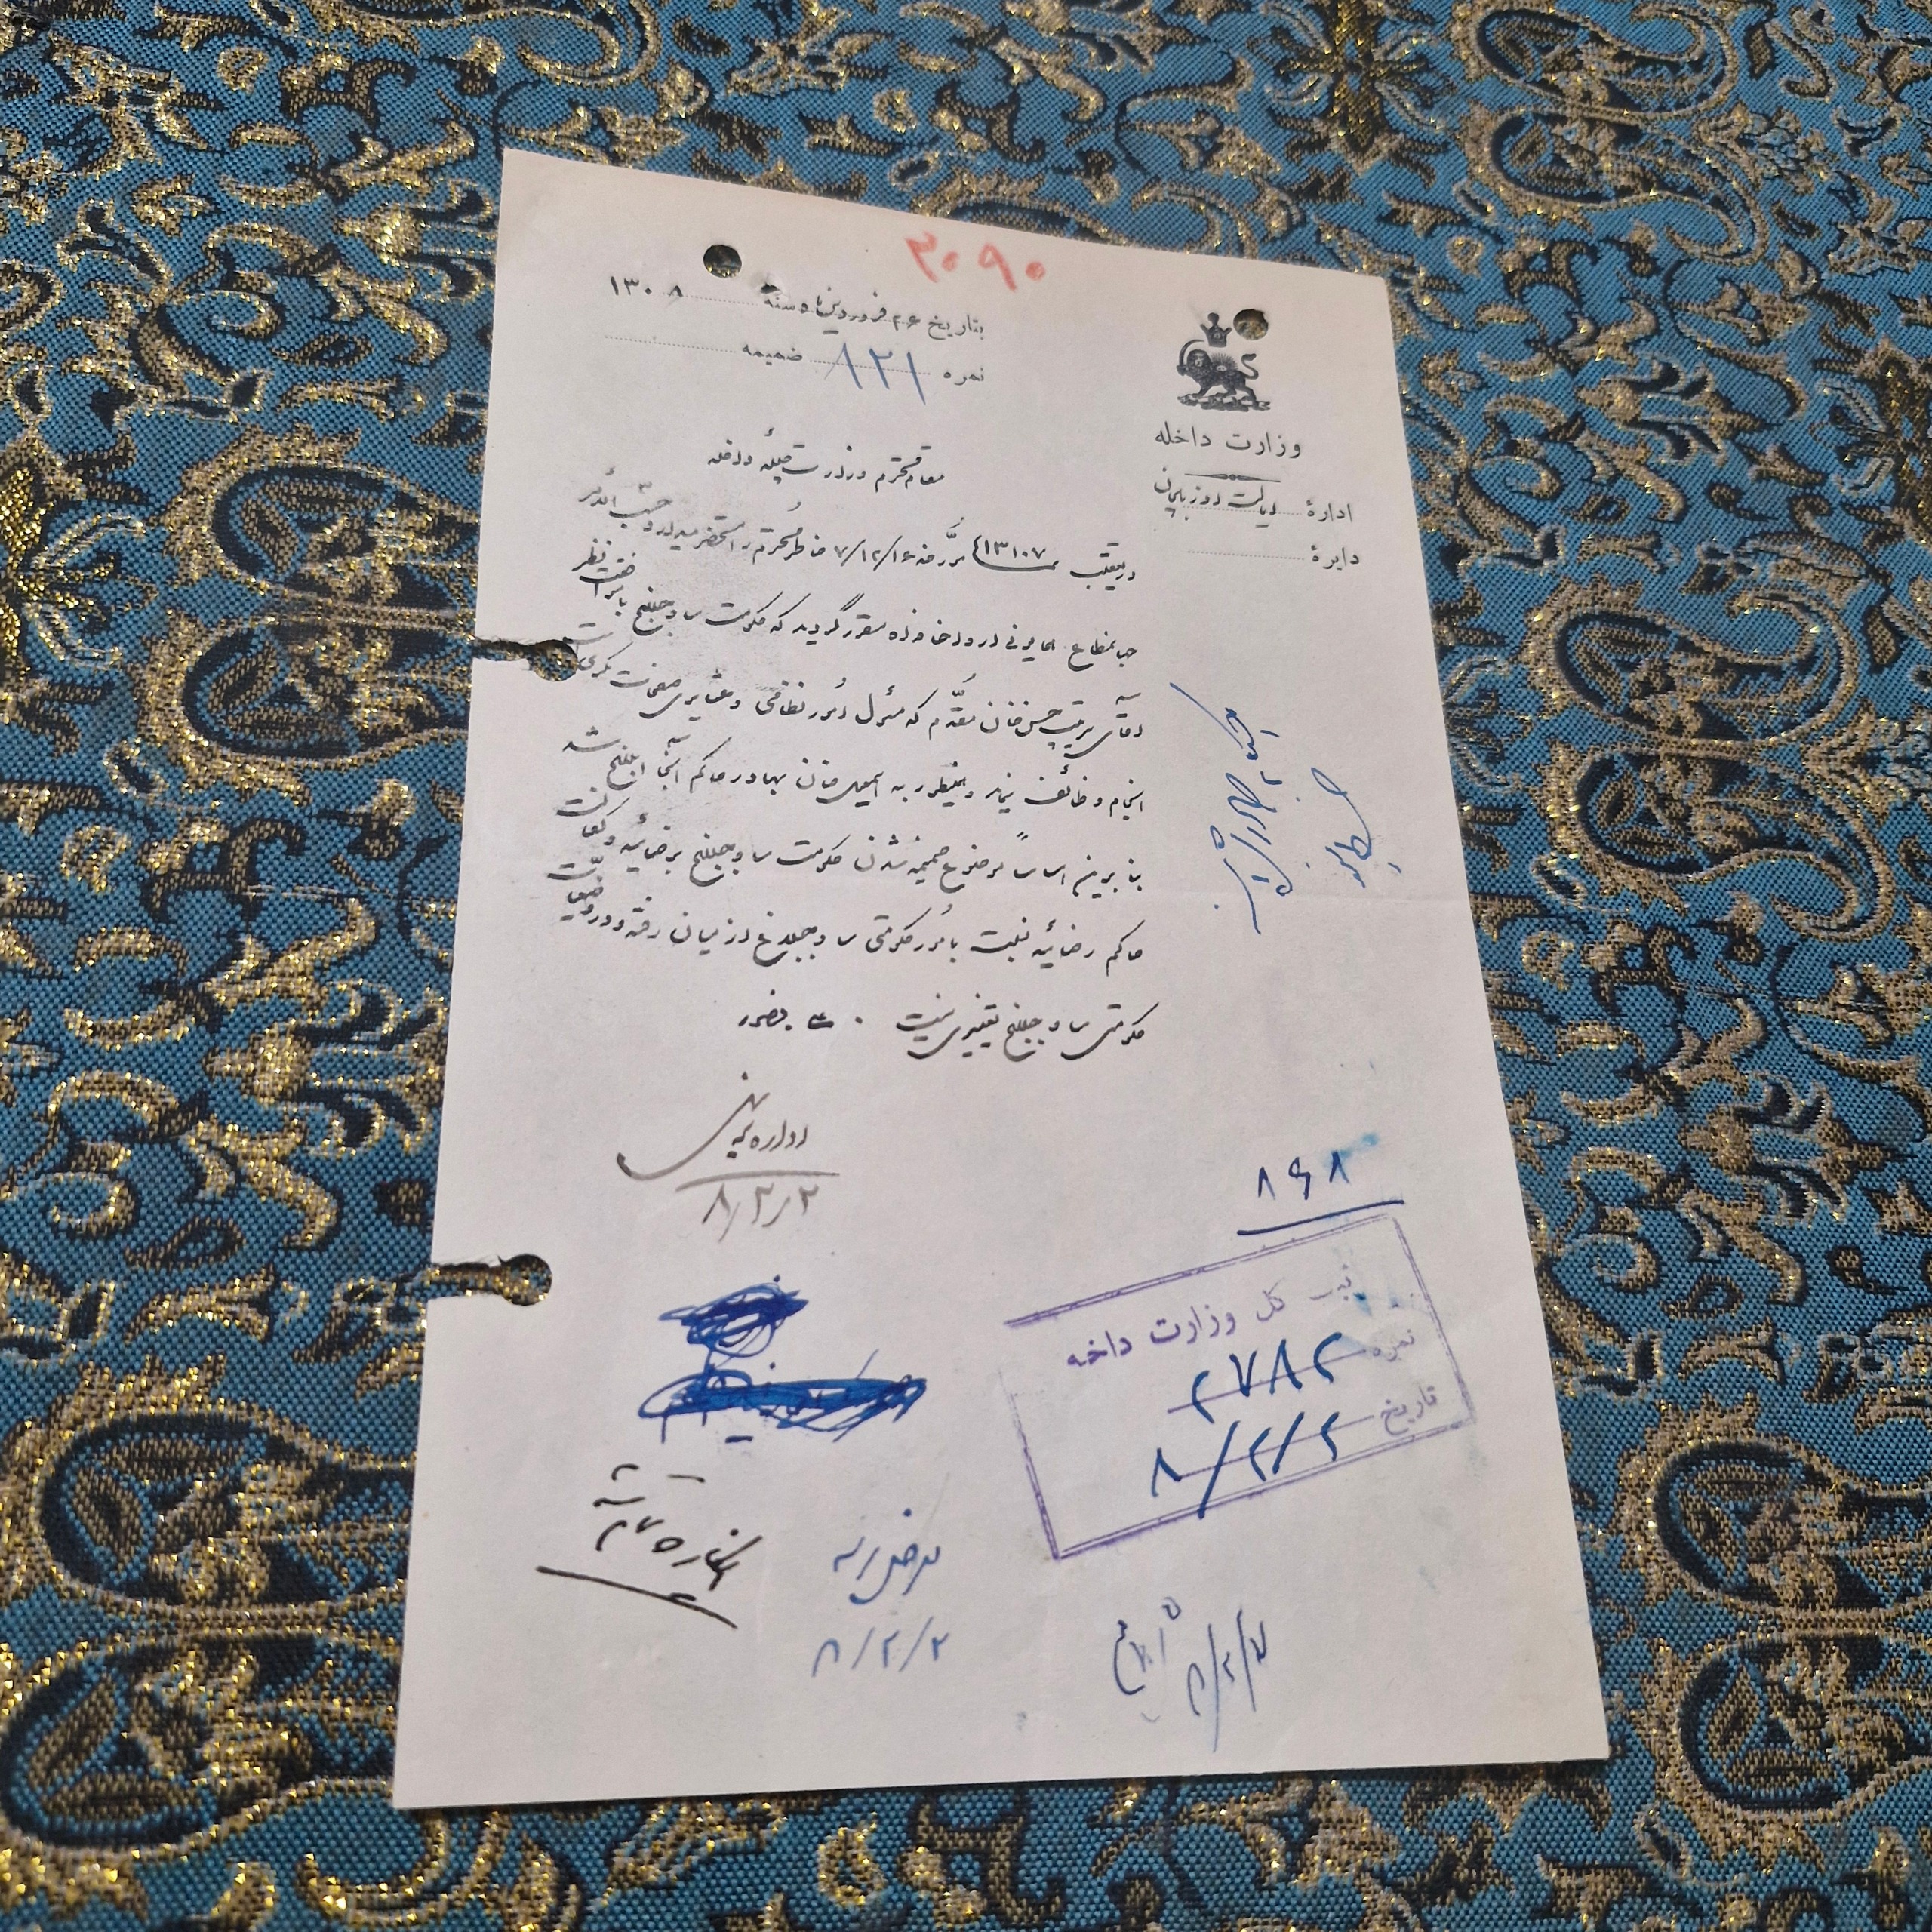 ۳۰۹۰
بتاریخ ۲۶ فروردین ماه سنه ۱۳۰۸
نمره ۸۲۱ ضمیمه
وزارت داخله
ادارهٔ ایالت آذربایجان
دایرهٔ
مقام محترم وزارت جلیلهٔ داخله
در تعقیب ۱۳۱۰۷ مورخه ۷/۱۲/۱۶ خاطر محترم را مستحضر میدارد حسب الامر
جهانمطاع همایونی ارواحنا فداه مقرر گردید که حکومت ساوجبلاغ با موافقت نظر
آقای سرتیپ حسن خان مقدم که مسئول امور نظامی و عشایری صفحات مکری است
انجام وظائف نماید و همینطور به اسمعیل خان بهادر حاکم آنجا ابلاغ شد
بنابرین اساساً موضوع ضمیمه شدن حکومت ساوجبلاغ برضائیه و کفالت
حاکم رضائیه نسبت بامور حکومتی ساوجبلاغ از میان رفته و در وضعیت
حکومتی ساوجبلاغ تغییری نیست
اداره
۸/۲/۲
۸۶۸
ثبت کل وزارت داخله
نمره ۲۷۸۲
تاریخ ۸/۲/۲
۸/۲/۲